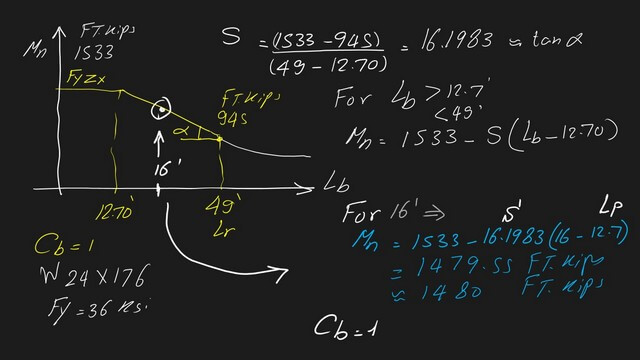 FT.Kips
1533
Mn
FyZx
FT.Kips
945
α
16'
Lb
12.70'
49'
Lr
Cb=1
W24x176
Fy=36 Ksi
S = (1533-945) / (49-12.70) = 16.1983 ≈ tan α
For Lb > 12.7'
< 49'
Mn = 1533 - S (Lb-12.70)
For 16' ⇒ S' Lp
Mn = 1533-16.1983(16-12.7)
= 1479.55 FT.Kips
≈ 1480 FT.Kips
Cb=1